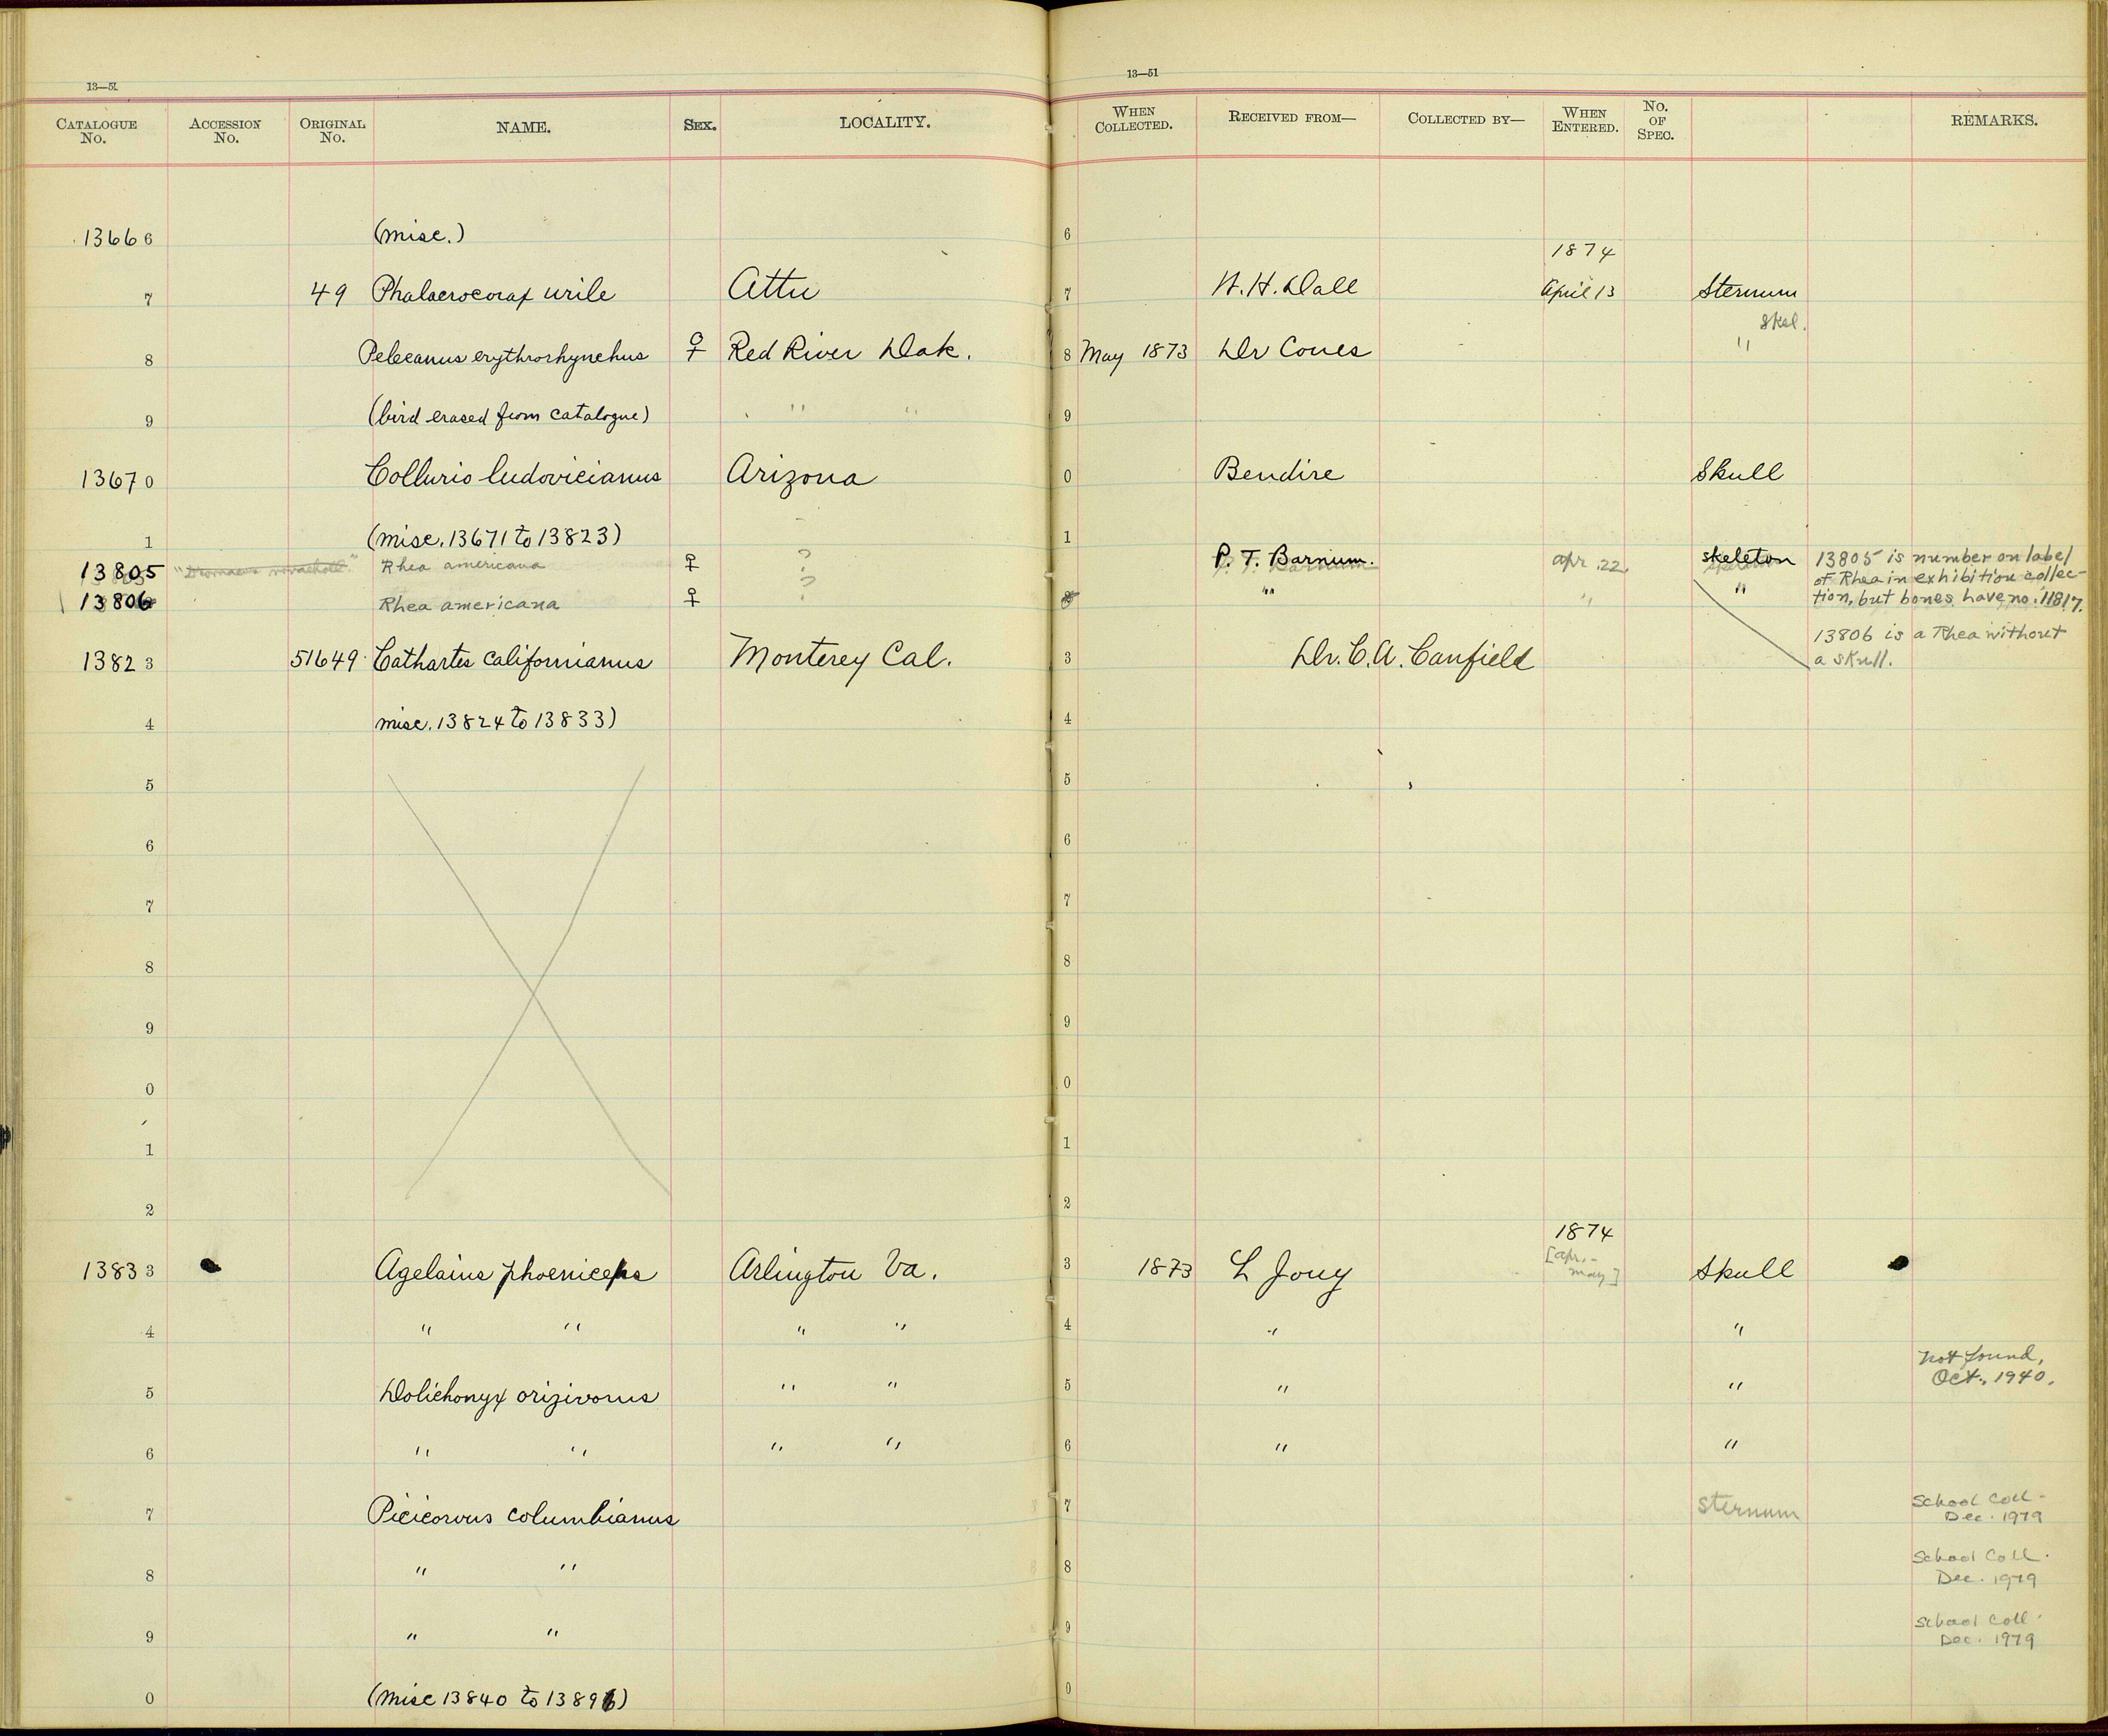 13—51
CATALOGUE No. ACCESSION No. ORIGINAL No. NAME. SEX. LOCALITY.
13666 (misc.)
7 49 Phalacrocorax urile Attu
8 Pelecanus erythrorhynchus ♀ Red River Dak.
9 (bird erased from catalogue) " "
13670 Collurio ludovicianus Arizona
1 (misc. 13671 to 13823)
13805 Rhea americana ♀ ?
13806 Rhea americana ♀ ?
13823 51649 Cathartes californianus Monterey Cal.
4 misc. 13824 to 13833)
5
6
7
8
9
0
1
2
13833 Agelaius phoeniceus Arlington Va.
4 " " " "
5 Dolichonyx orizivorus " "
6 " " " "
7 Picicorvus columbianus
8 " "
9 " "
0 (misc 13840 to 13896)
13—51
WHEN COLLECTED. RECEIVED FROM— COLLECTED BY— WHEN ENTERED. No. OF SPEC. REMARKS.
6
1874
7 W. H. Dall April 13 Sternum
skel.
8 May 1873 Dr Coues "
9
0 Bendire Skull
1
P. T. Barnum. apr. 22. skeleton 13805 is number on label
of Rhea in exhibition collec-
" " " tion, but bones have no. 11817.
13806 is a Rhea without
3 Dr. C. A. Canfield a skull.
4
5
6
7
8
9
0
1
2
1874
3 1873 L Jouy [apr.- may] Skull
4 " "
not found,
5 " " Oct., 1940.
6 " "
7 sternum School Coll.
Dec. 1979
8 School Coll.
Dec. 1979
9 School Coll.
Dec. 1979
0